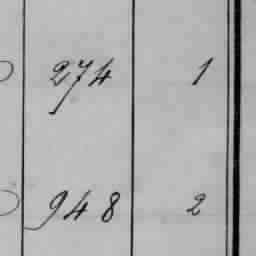 274 1
948 2